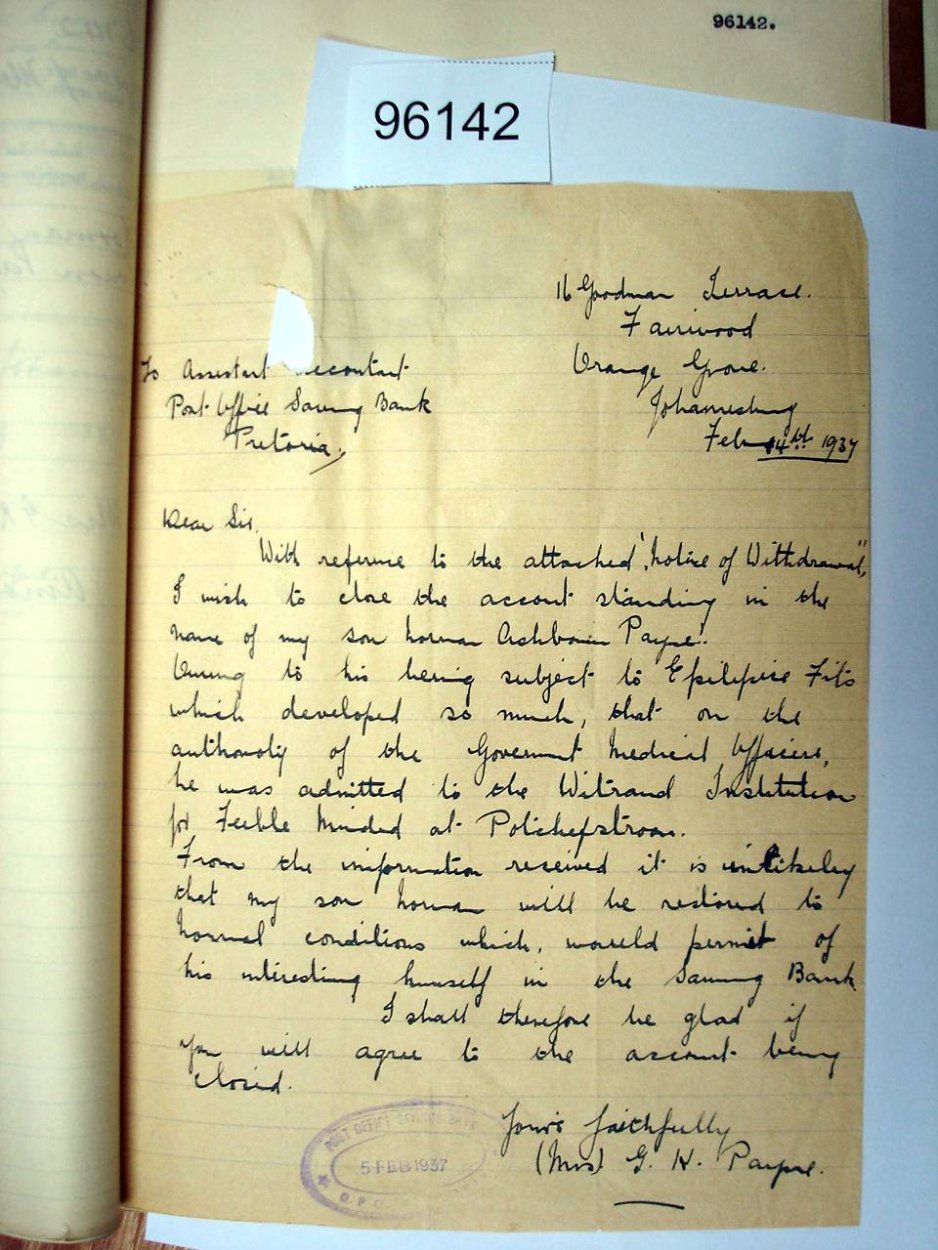 96142.
96142
16 Goodman Terrace.
Fairwood
Orange Grove.
Johannesburg
Feb 4th 1937
To Assistant Accountant
Post Office Saving Bank
Pretoria.
Dear Sir.
With reference to the attached "Notice of Withdrawal",
I wish to close the account standing in the
name of my son Norman Payne.
Owing to his being subject to Fits
which developed so much, that on the
of the Goverment Medical Officers,
he was admitted to the Witrand Institution
for Feeble Minded at Potchefstroom.
From the information received it is unlikely
that my son Norman will be restored to
normal conditions which, would permit of
his interesting himself in the Saving Bank
I shall therefore be glad if
you will agree to the account being
closed.
Yours faithfully
(Mrs) G. H. Payne.
POST OFFICE SAVINGS BANK
5 FEB 1937
G.P.O.